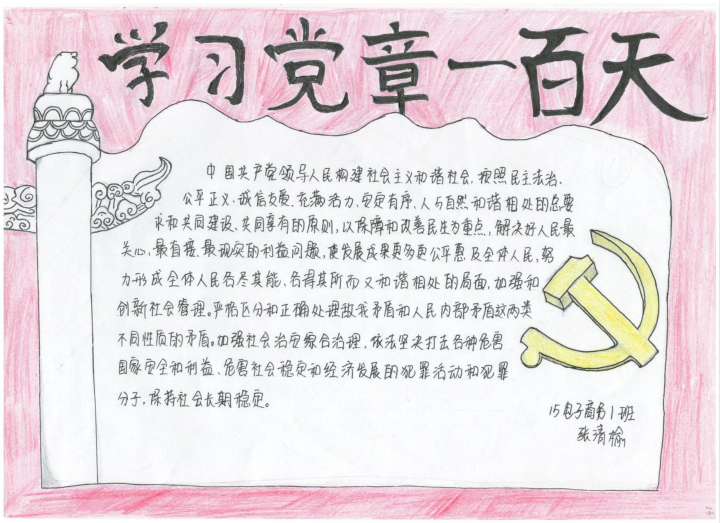 学习党章一百天
中国共产党领导人民构建社会主义和谐社会,按照民主法治、
公平正义、诚信友爱、充满活力、安定有序、人与自然和谐相处的总要
求和共同建设、共同享有的原则,以保障和改善民生为重点,解决好人民最
关心、最直接、最现实的利益问题,使发展成果更多更公平惠及全体人民,努
力形成全体人民各尽其能、各得其所而又和谐相处的局面,加强和
创新社会管理。严格区分和正确处理敌我矛盾和人民内部矛盾这两类
不同性质的矛盾。加强社会治安综合治理,依法坚决打击各种危害
国家安全和利益、危害社会稳定和经济发展的犯罪活动和犯罪
分子,保持社会长期稳定。
15电子商务1班
张清榆